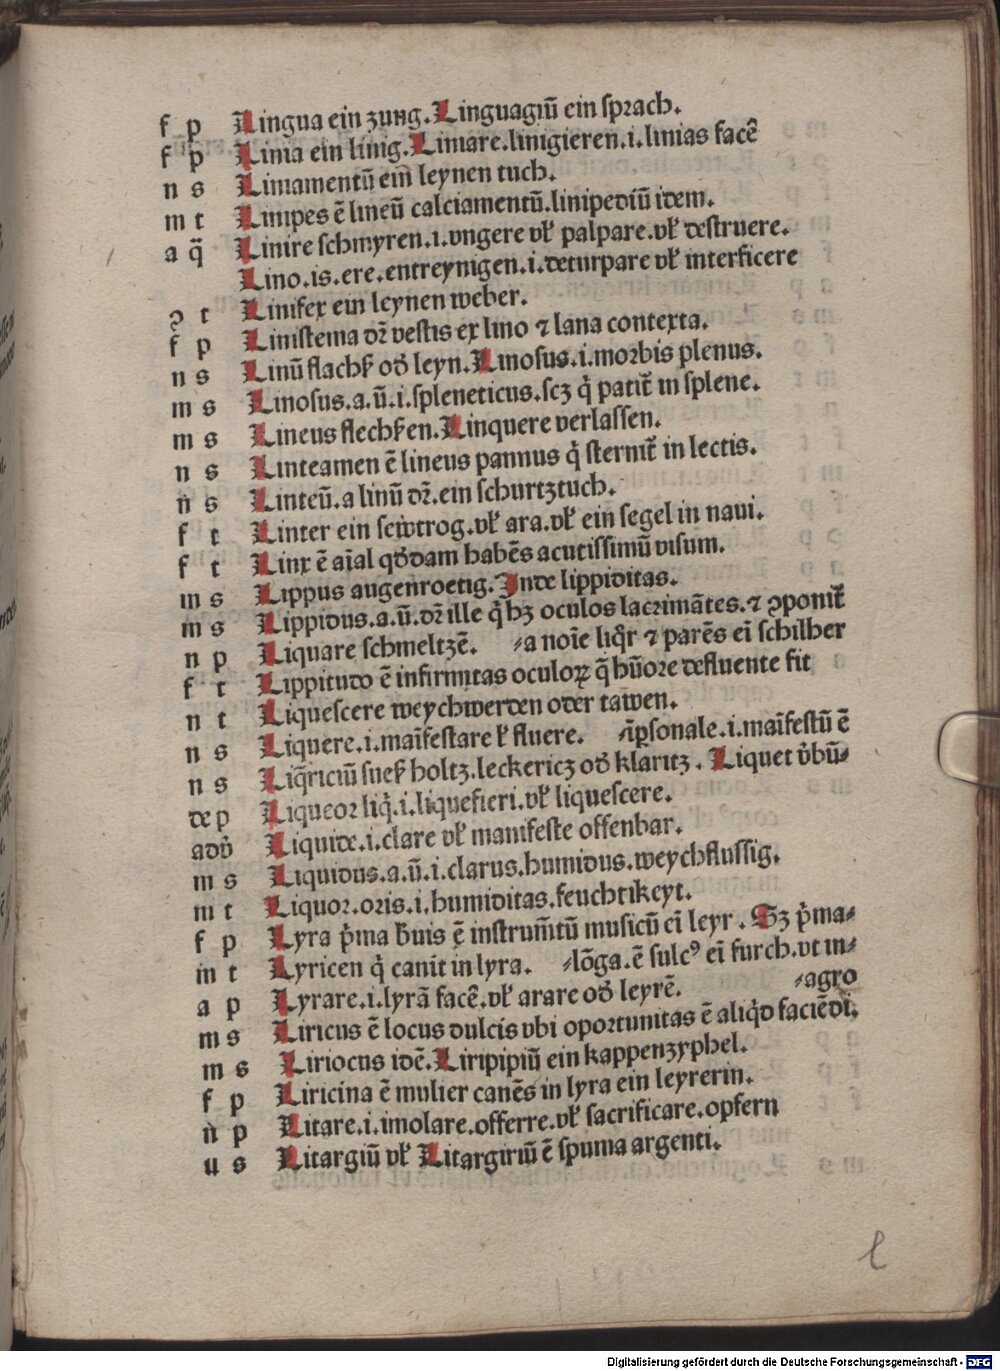 f p Lingua ein zung. Linguagiū ein sprach.
f p Linia ein linig. Liniare. linigieren. i. linias facē
n s Liniamentū ein leynen tuch.
m t Linipes ē lineū calciamentū. linipediū idem.
a q̄ Linire schmyren. i. vngere vl palpare. vl destruere.
Lino. is. ere. entreynigen. i. deturpare vl interficere
ꝯ t Linifex ein leynen weber.
f p Linistema dr̄ vestis ex lino ⁊ lana contexta.
n s Linū flachß od̄ leyn. Linosus. i. morbis plenus.
m s Linosus. a. ū. i. spleneticus. scz q̇ patit᷑ in splene.
m s Lineus flechßen. Linquere verlassen.
n s Linteamen ē lineus pannus q̇ sternit᷑ in lectis.
n s Linteū. a linū dr̄. ein schurtztuch.
f t Linter ein sewtrog. vl ara. vl ein segel in naui.
f t Linx ē aīal qd̄dam habēs acutissimū visum.
m s Lippus augenroetig. Inde lippiditas.
m s Lippidus. a. ū. dr̄ ille q̇ hꝫ oculos lacrimātes. ⁊ ꝯponit᷑
n p Liquare schmeltzē. ⸗a noīe liq̇r ⁊ parēs eī schilher
f t Lippitudo ē infirmitas oculoꝝ q̄ hūore defluente fit
n t Liquescere weychwerden oder tawen.
n s Liquere. i. maīfestare l fluere. ⸗īꝑsonale. i. maīfestū ē
n s Liq̄riciū sueß holtz. leckericz od̄ klaritz. Liquet v̇bū⸗
de p Liqueor liq̇. i. liquefieri. vl liquescere.
adv̇ Liquide. i. clare vl manifeste offenbar.
m s Liquidus. a. ū. i. clarus. humidus. weychflussig.
m t Liquor. oris. i. humiditas. feuchtikeyt.
f p Lyra p̄ma b̄uis ē instrum̄tū musicū eī leyr. Sꝫ p̄ma⸗
m t Lyricen q̇ canit in lyra. ⸗lōga. ē sulcꝰ eī furch. vt in⸗
a p Lyrare. i. lyrā facē. vl arare od̄ leyrē. ⸗agro
m s Liricus ē locus dulcis vbi oportunitas ē aliq̇d faciēdi.
m s Liriocus idē. Liripipiū ein kappenzyphel.
f p Liricina ē mulier canēs in lyra ein leyrerin.
n p Litare. i. imolare. offerre. vl sacrificare. opfern
u s Litargiū vl Litargiriū ē spuma argenti.
l
Digitalisierung gefördert durch die Deutsche Forschungsgemeinschaft - DFG